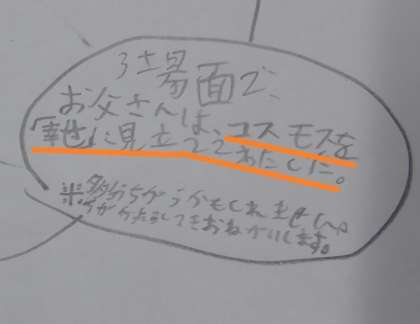 場面で、
お父さんは、コスモスを
「幸せ」に見立ててわたした。
※多分ちがうかもしれません。
ちがかったらしてきおねがいします。